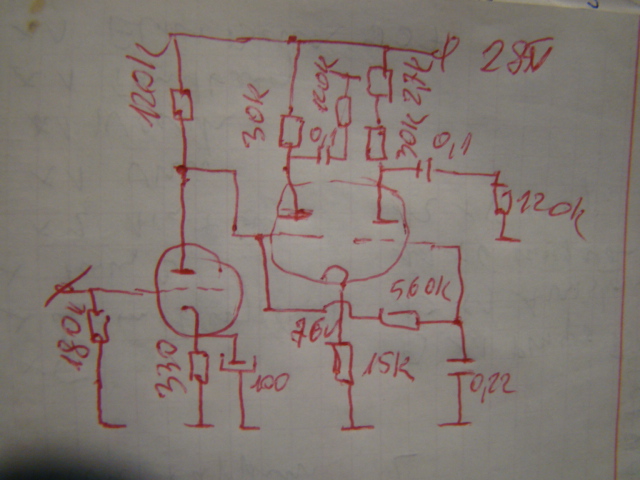 120k
30k
0,1
120k
2,7k
30k
0,1
120k
180k
330
100
76v
15k
560k
0,22